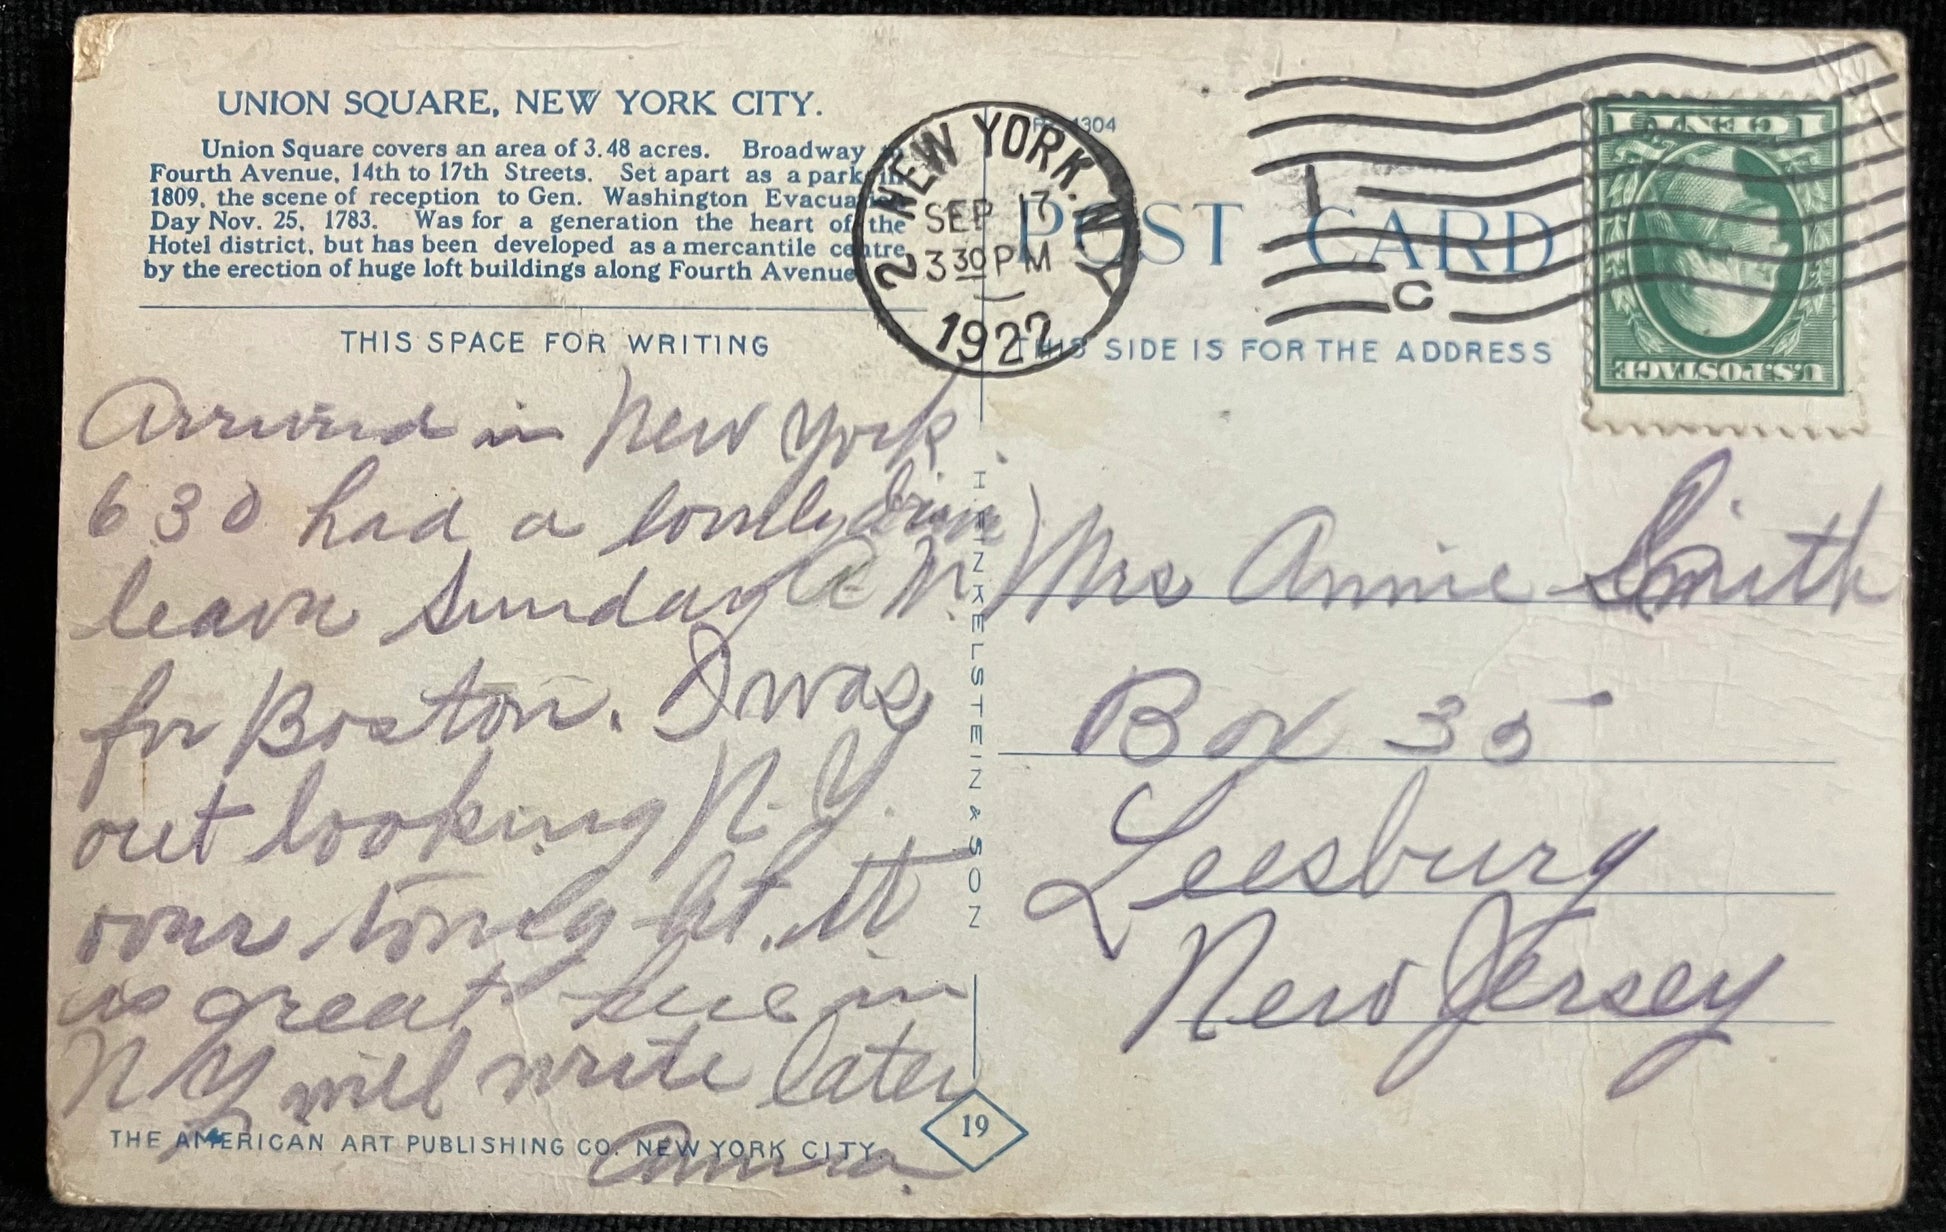 UNION SQUARE, NEW YORK CITY.
Union Square covers an area of 3.48 acres. Broadway
Fourth Avenue, 14th to 17th Streets. Set apart as a park in
1809, the scene of reception to Gen. Washington Evacua
Day Nov. 25, 1783. Was for a generation the heart of the
Hotel district, but has been developed as a mercantile centre
by the erection of huge loft buildings along Fourth Avenue
THIS SPACE FOR WRITING
Arrived in New York
6 30 had a lovely
leave Sunday A M.
for Boston. I was
out looking N. Y.
over tonight. It
is great here in
N Y will write later
Anna.
THE AMERICAN ART PUBLISHING CO. NEW YORK CITY.
19
H. FINKELSTEIN & SON
2 NEW YORK. N.Y.
SEP 17
3 30 PM
1922
4304
POST CARD
THIS SIDE IS FOR THE ADDRESS
1 C
1 CENT 1
U.S. POSTAGE
Mrs Annie Smith
Box 35
Leesburg
New Jersey